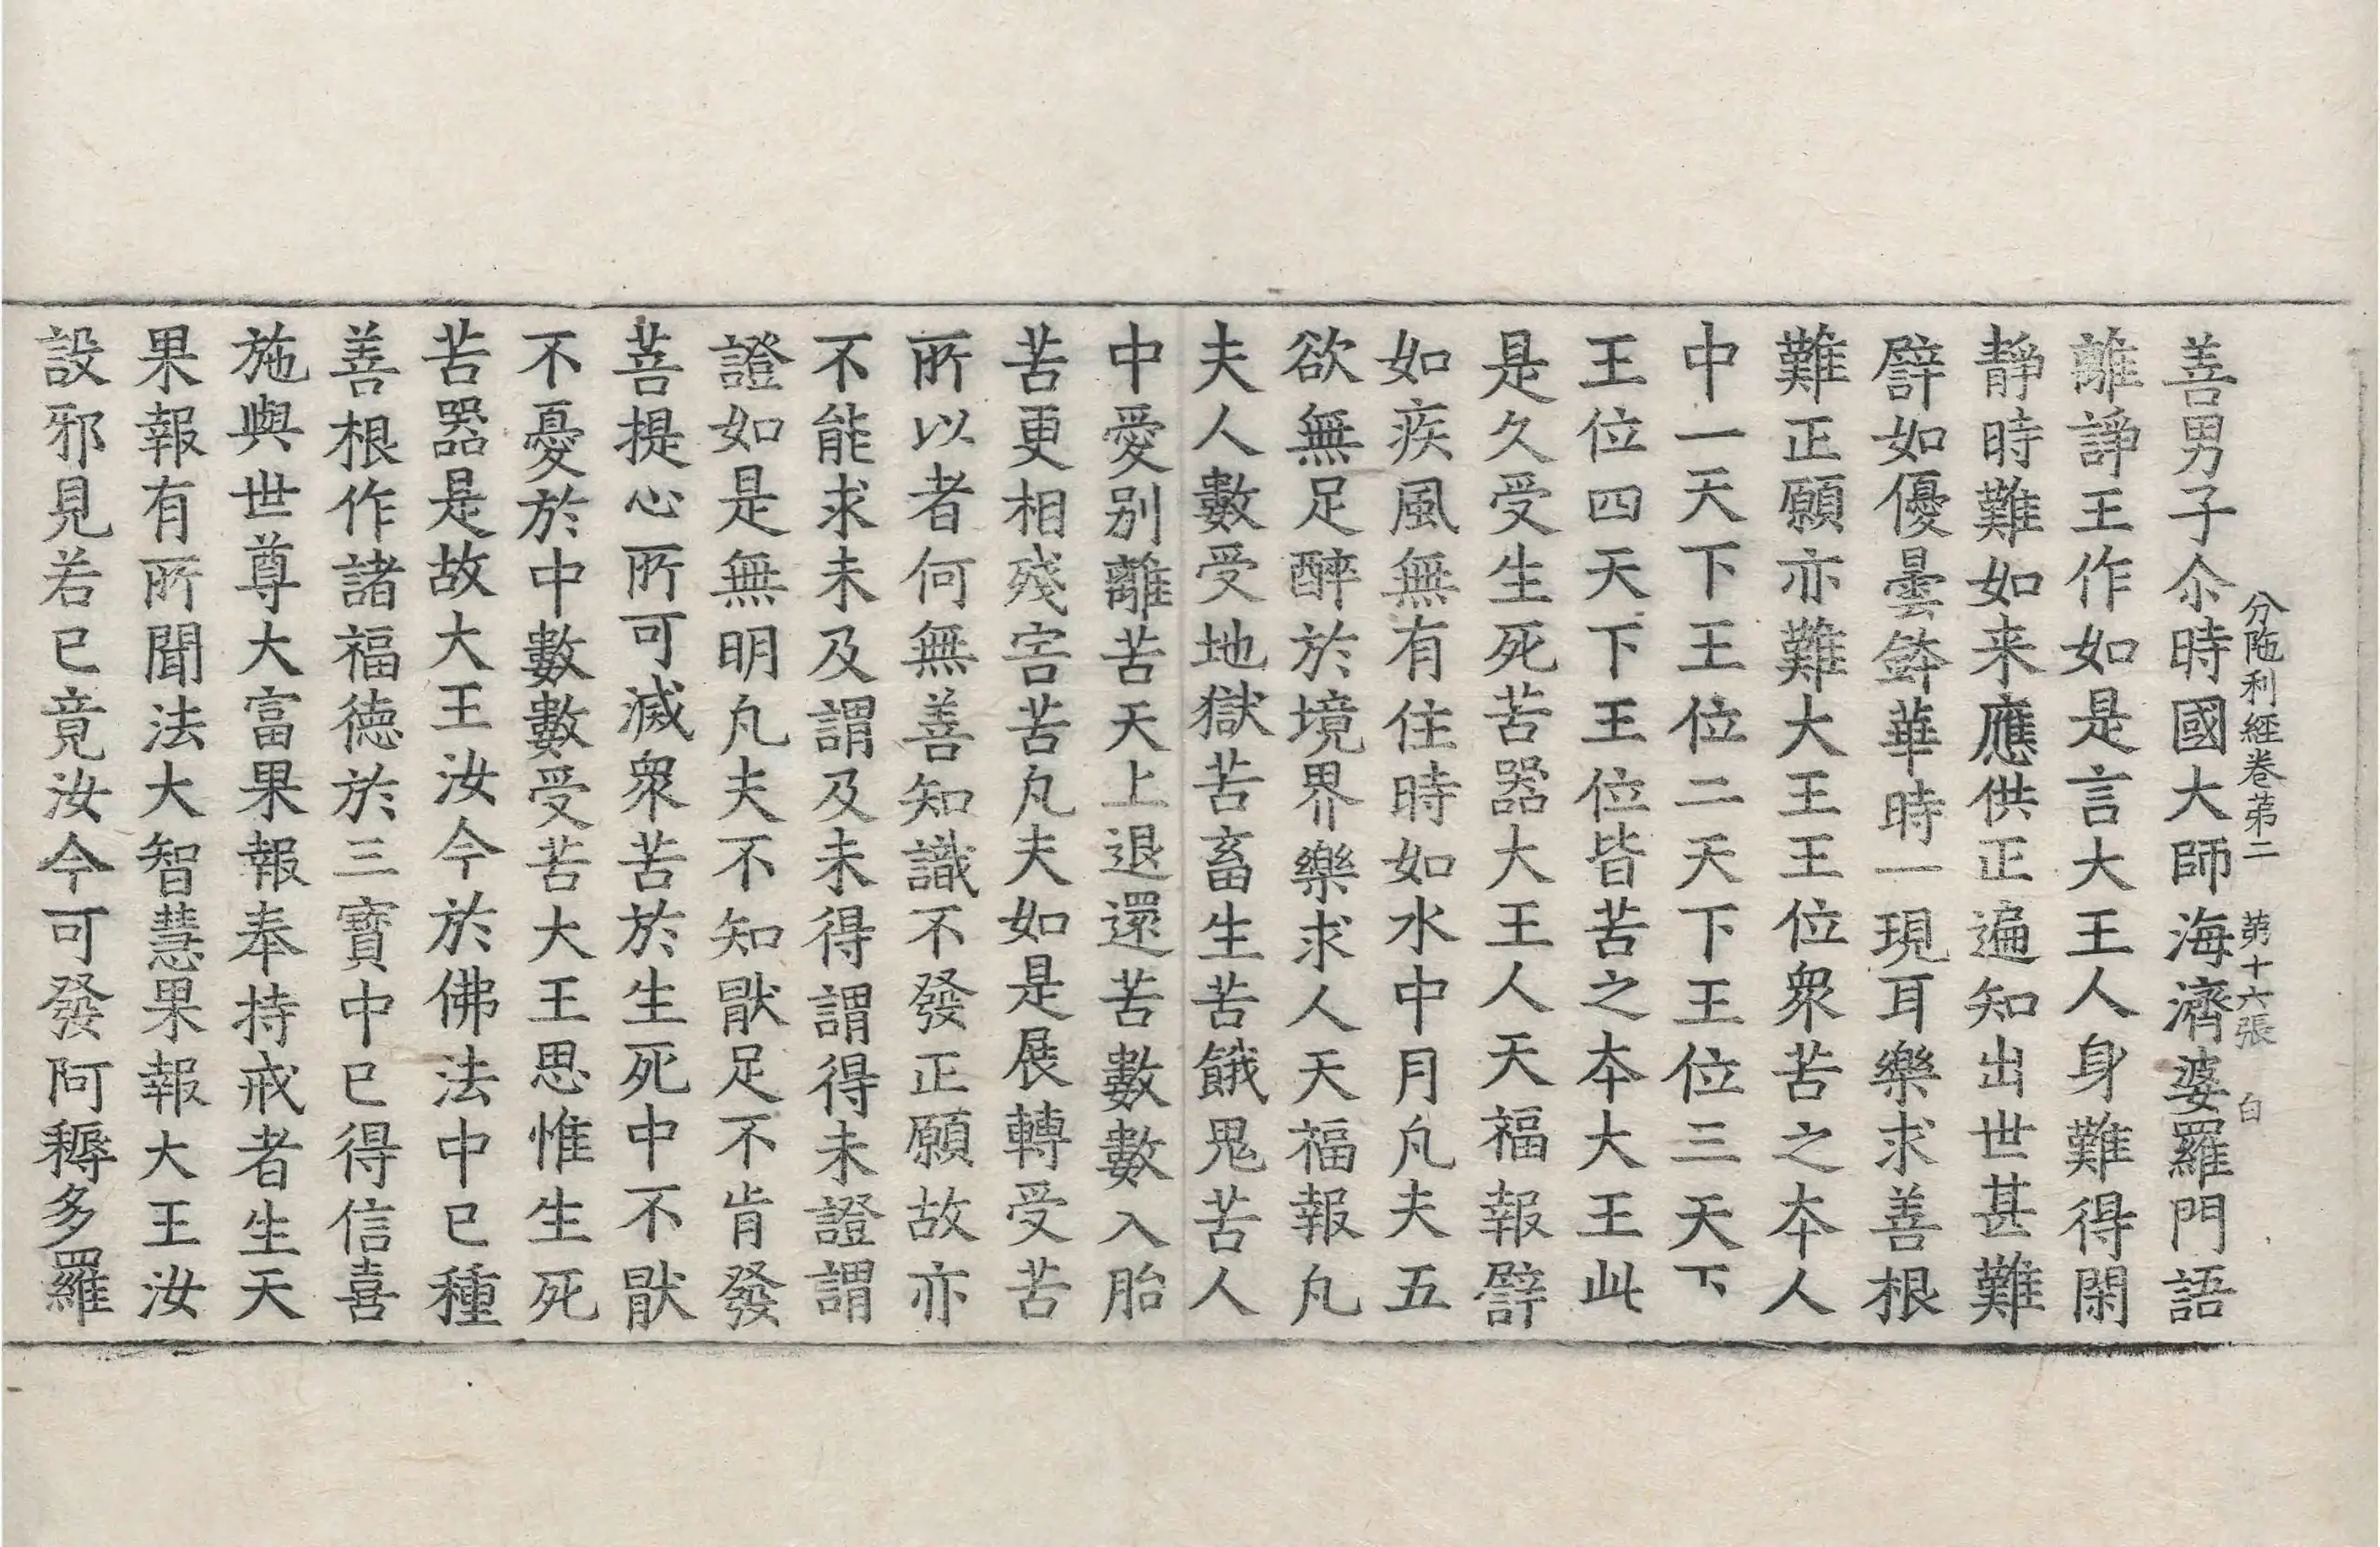 分陁利經卷第二 第十六張 白
善男子尒時國大師海濟婆羅門語
離諍王作如是言大王人身難得閑
靜時難如来應供正遍知出世甚難
譬如優曇鉢華時一現耳樂求善根
難正願亦難大王王位衆苦之本人
中一天下王位二天下王位三天下
王位四天下王位皆苦之本大王此
是久受生死苦器大王人天福報譬
如疾風無有住時如水中月凡夫五
欲無足醉於境界樂求人天福報凡
夫人數受地獄苦畜生苦餓鬼苦人
中愛别離苦天上退還苦數數入胎
苦更相殘害苦凡夫如是展轉受苦
所以者何無善知識不發正願故亦
不能求未及謂及未得謂得未證謂
證如是無明凡夫不知猒足不肯發
菩提心所可滅衆苦於生死中不猒
不憂於中數數受苦大王思惟生死
苦器是故大王汝今於佛法中已種
善根作諸福德於三寶中已得信喜
施與世尊大富果報奉持戒者生天
果報有所聞法大智慧果報大王汝
設邪見若已竟汝今可發阿耨多羅